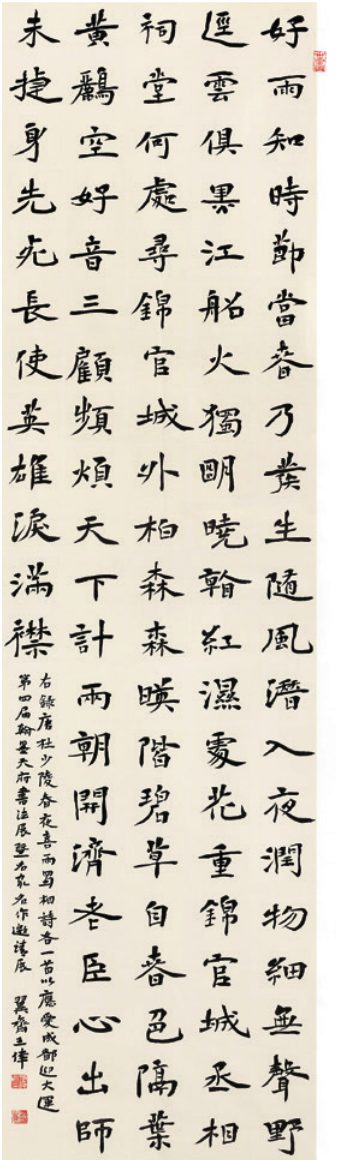 好雨知時節當春乃發生隨風潛入夜潤物細無聲野
逕雲俱黑江船火獨明曉看紅濕處花重錦官城丞相
祠堂何處尋錦官城外柏森森暎階碧草自春色隔葉
黃鸝空好音三顧頻煩天下計兩朝開濟老臣心出師
未捷身先死長使英雄淚滿襟
右錄唐杜少陵春夜喜雨蜀相詩各一首以應愛成都迎大運
第四屆翰墨天府書法展暨名家名作邀請展 翼齋王偉